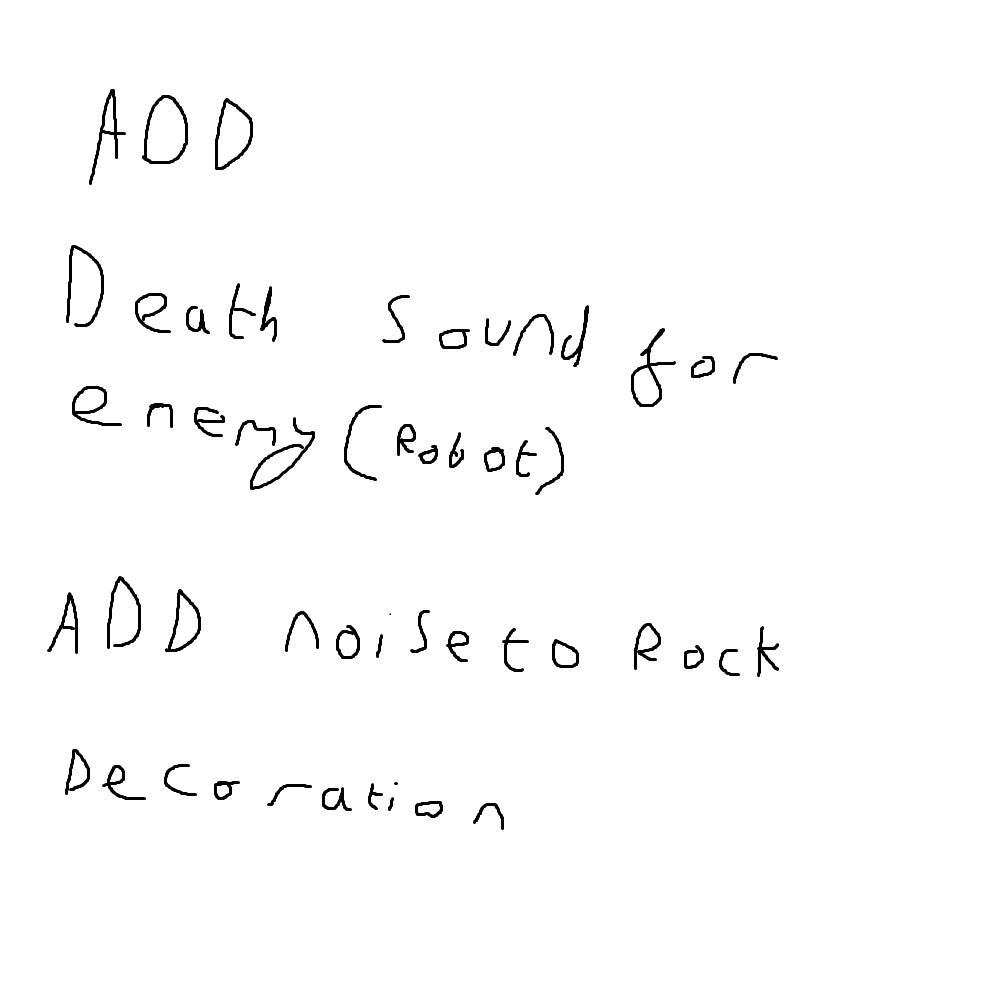 ADD
Death sound for
enemy (Robot)
ADD noise to Rock
Decoration